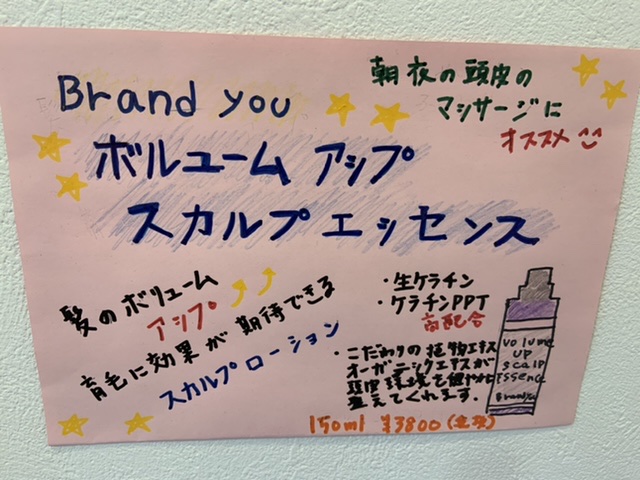 Brand you
朝夜の頭皮の
マッサージに
オススメ
ボルュームアップ
スカルプエッセンス
髪のボリューム
アップ
育毛に効果が期待できる
スカルプローション
・生ケラチン
・ケラチンPPT
高配合
・こだわりの植物エキス
オーガニックエキスが
頭皮環境を健やかに
整えてくれます。
volume
up
scalp
essence
Brand you
150ml ¥3800